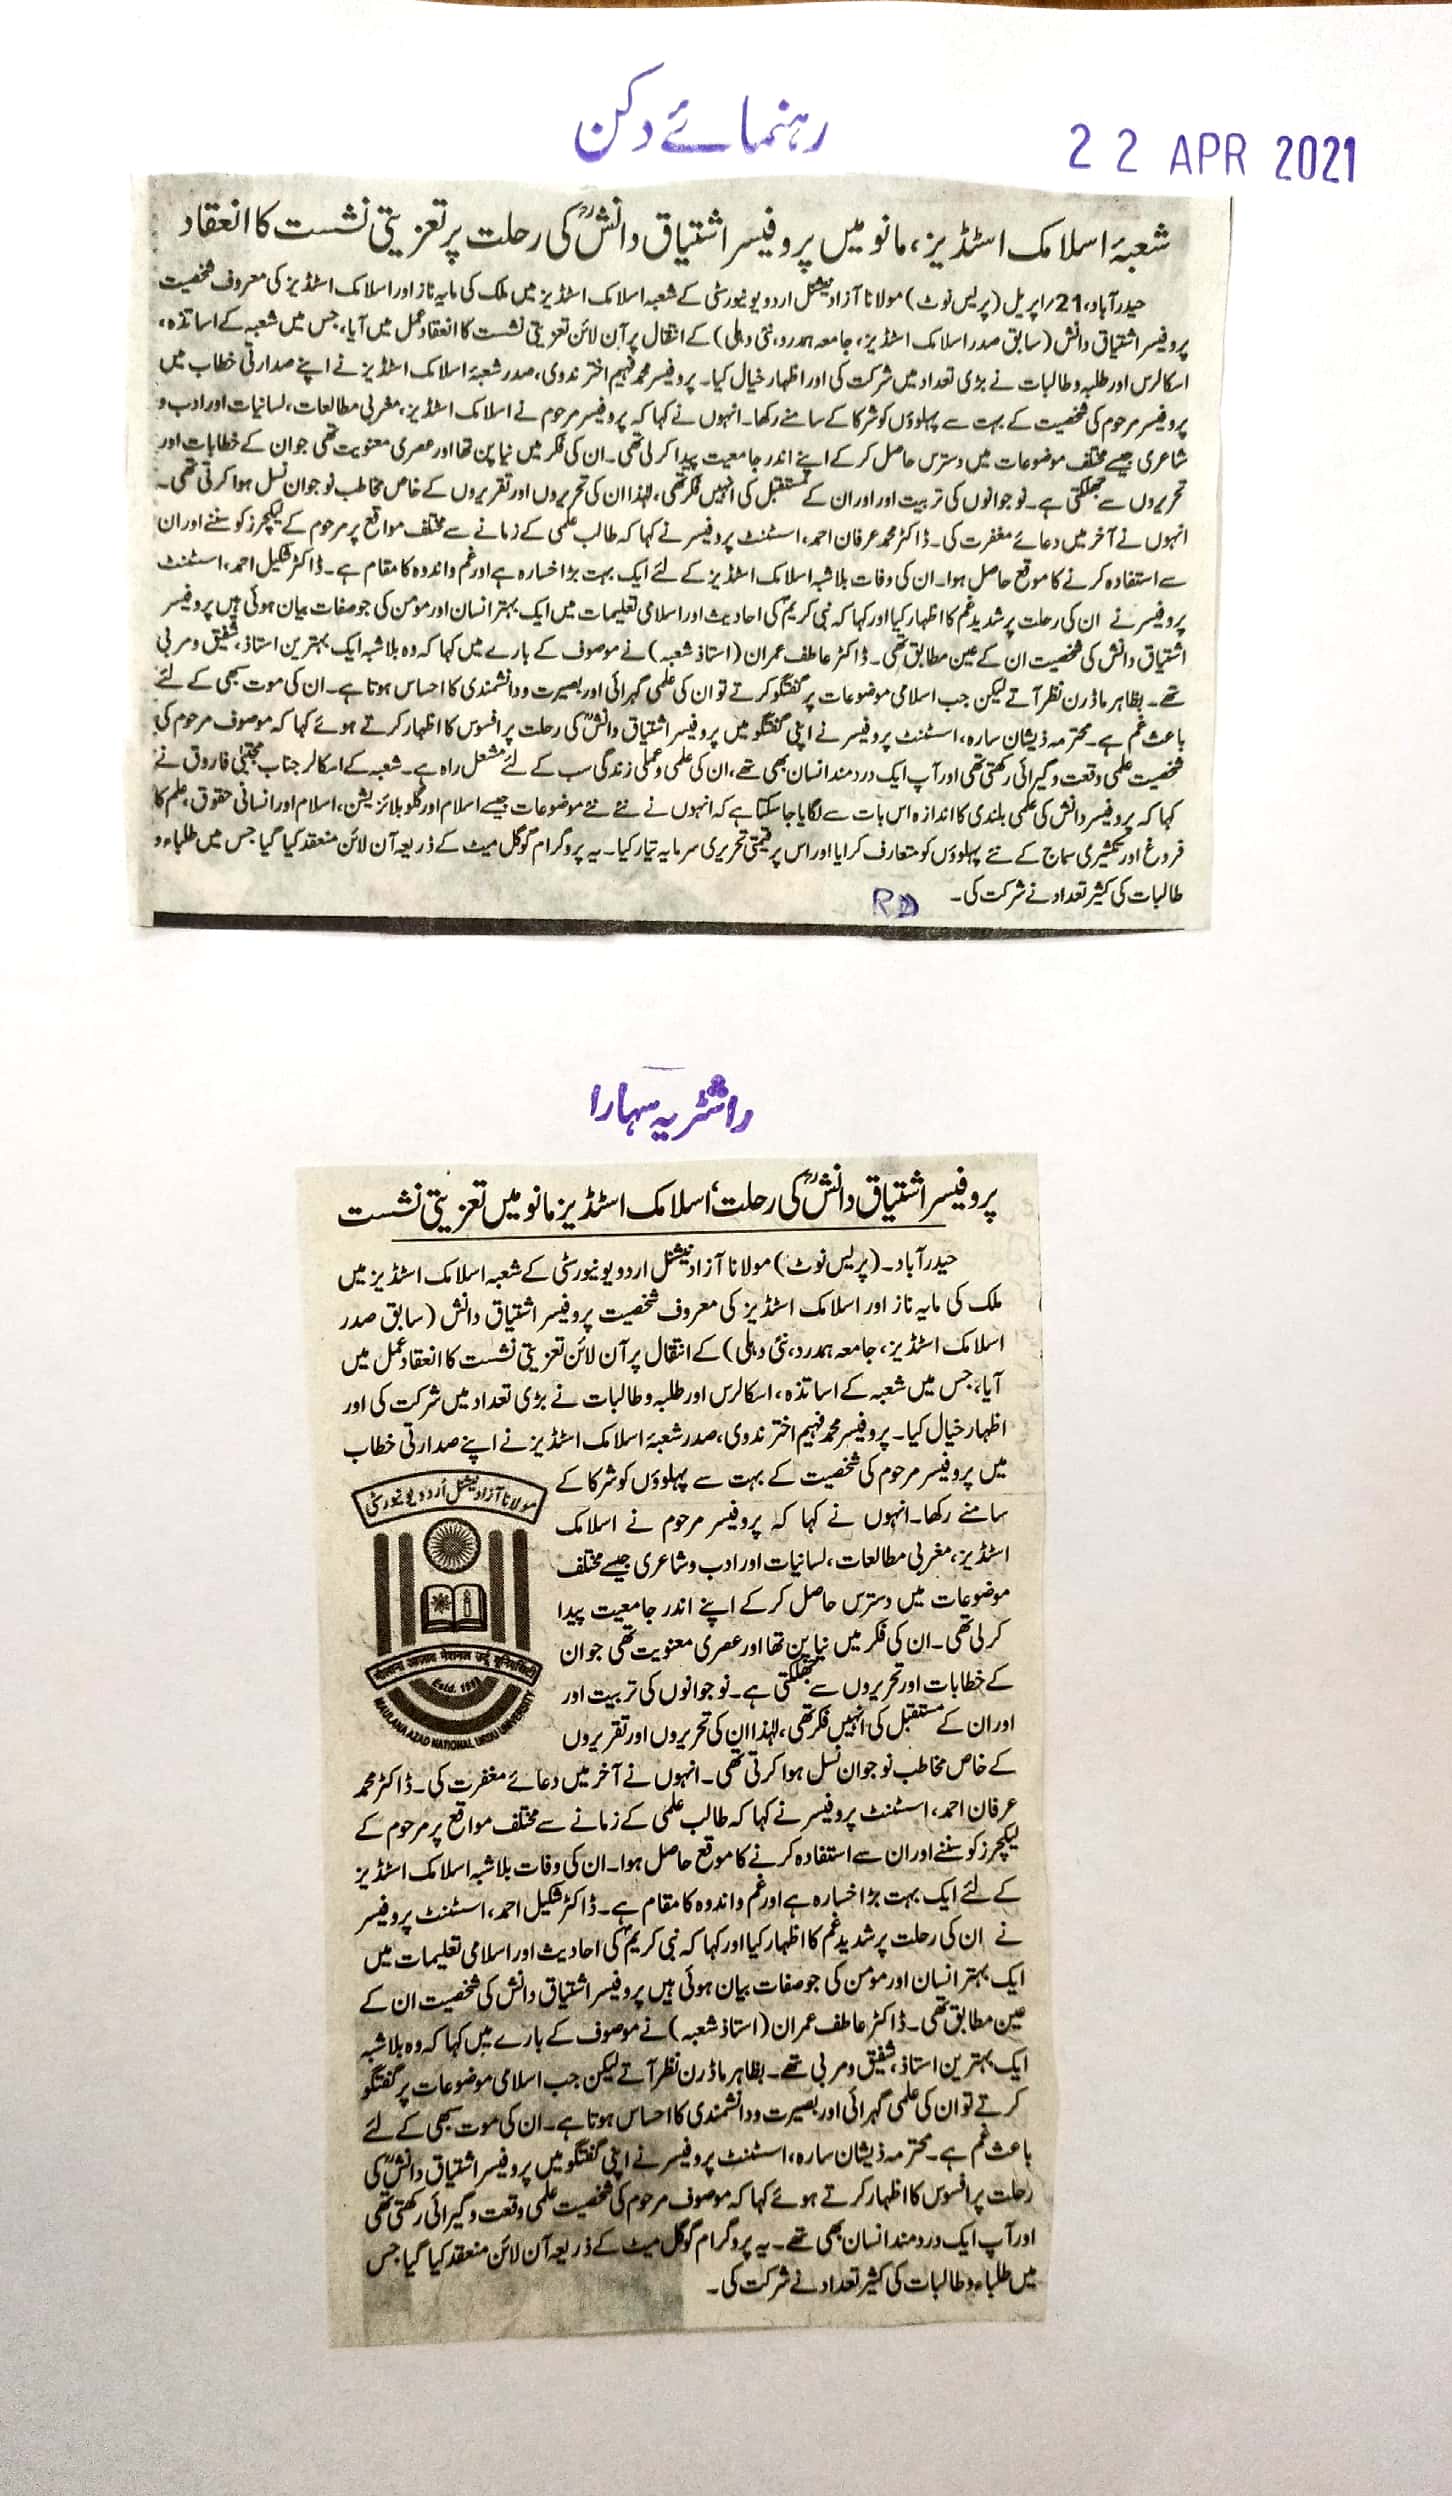 رہنمائے دکن
22 APR 2021
شعبۂ اسلامک اسٹڈیز، مانو میں پروفیسر اشتیاق دانشؒ کی رحلت پر تعزیتی نشست کا انعقاد
حیدرآباد، 21/اپریل (پریس نوٹ) مولانا آزاد نیشنل اردو یونیورسٹی کے شعبہ اسلامک اسٹڈیز میں ملک کی مایہ ناز اور اسلامک اسٹڈیز کی معروف شخصیت
پروفیسر اشتیاق دانش (سابق صدر اسلامک اسٹڈیز، جامعہ ہمدرد، نئی دہلی) کے انتقال پر آن لائن تعزیتی نشست کا انعقاد عمل میں آیا، جس میں شعبہ کے اساتذہ،
اسکالرس اور طلبہ و طالبات نے بڑی تعداد میں شرکت کی اور اظہار خیال کیا۔ پروفیسر محمد فہیم اختر ندوی، صدر شعبۂ اسلامک اسٹڈیز نے اپنے صدارتی خطاب میں
پروفیسر مرحوم کی شخصیت کے بہت سے پہلوؤں کو شرکا کے سامنے رکھا۔ انہوں نے کہا کہ پروفیسر مرحوم نے اسلامک اسٹڈیز، مغربی مطالعات، لسانیات اور ادب و
شاعری جیسے مختلف موضوعات میں دسترس حاصل کر کے اپنے اندر جامعیت پیدا کر لی تھی۔ ان کی فکر میں نیا پن تھا اور عصری معنویت تھی جو ان کے خطابات اور
تحریروں سے جھلکتی ہے۔ نوجوانوں کی تربیت اور اور ان کے مستقبل کی انہیں فکر تھی، لہٰذا ان کی تحریروں اور تقریروں کے خاص مخاطب نوجوان نسل ہوا کرتی تھی۔
انہوں نے آخر میں دعائے مغفرت کی۔ ڈاکٹر محمد عرفان احمد، اسسٹنٹ پروفیسر نے کہا کہ طالب علمی کے زمانے سے مختلف مواقع پر مرحوم کے لیکچرز کو سننے اور ان
سے استفادہ کرنے کا موقع حاصل ہوا۔ ان کی وفات بلاشبہ اسلامک اسٹڈیز کے لئے ایک بہت بڑا خسارہ ہے اور غم و اندوہ کا مقام ہے۔ ڈاکٹر شکیل احمد، اسسٹنٹ
پروفیسر نے ان کی رحلت پر شدید غم کا اظہار کیا اور کہا کہ نبی کریمؐ کی احادیث اور اسلامی تعلیمات میں ایک بہتر انسان اور مومن کی جو صفات بیان ہوئی ہیں پروفیسر
اشتیاق دانش کی شخصیت ان کے عین مطابق تھی۔ ڈاکٹر عاطف عمران (استاذ شعبہ) نے موصوف کے بارے میں کہا کہ وہ بلاشبہ ایک بہترین استاذ، شفیق و مربی
تھے۔ بظاہر ماڈرن نظر آتے لیکن جب اسلامی موضوعات پر گفتگو کرتے تو ان کی علمی گہرائی اور بصیرت و دانشمندی کا احساس ہوتا ہے۔ ان کی موت سبھی کے لئے
باعث غم ہے۔ محترمہ ذیشان سارہ، اسسٹنٹ پروفیسر نے اپنی گفتگو میں پروفیسر اشتیاق دانشؒ کی رحلت پر افسوس کا اظہار کرتے ہوئے کہا کہ موصوف مرحوم کی
شخصیت علمی وقعت و گیرائی رکھتی تھی اور آپ ایک دردمند انسان بھی تھے، ان کی علمی و عملی زندگی سب کے لئے مشعل راہ ہے۔ شعبہ کے اسکالر جناب مجتبیٰ فاروق نے
کہا کہ پروفیسر دانش کی علمی بلندی کا اندازہ اس بات سے لگایا جا سکتا ہے کہ انہوں نے نئے نئے موضوعات جیسے اسلام اور گلوبلائزیشن، اسلام اور انسانی حقوق، علم کا
فروغ اور تکثیری سماج کے نئے پہلوؤں کو متعارف کرایا اور اس پر قیمتی تحریری سرمایہ تیار کیا۔ یہ پروگرام گوگل میٹ کے ذریعہ آن لائن منعقد کیا گیا جس میں طلباء و
طالبات کی کثیر تعداد نے شرکت کی۔
RD
راشٹریہ سہارا
پروفیسر اشتیاق دانشؒ کی رحلت، اسلامک اسٹڈیز مانو میں تعزیتی نشست
حیدرآباد۔ (پریس نوٹ) مولانا آزاد نیشنل اردو یونیورسٹی کے شعبہ اسلامک اسٹڈیز میں
ملک کی مایہ ناز اور اسلامک اسٹڈیز کی معروف شخصیت پروفیسر اشتیاق دانش (سابق صدر
اسلامک اسٹڈیز، جامعہ ہمدرد، نئی دہلی) کے انتقال پر آن لائن تعزیتی نشست کا انعقاد عمل میں
آیا، جس میں شعبہ کے اساتذہ، اسکالرس اور طلبہ و طالبات نے بڑی تعداد میں شرکت کی اور
اظہار خیال کیا۔ پروفیسر محمد فہیم اختر ندوی، صدر شعبۂ اسلامک اسٹڈیز نے اپنے صدارتی خطاب
میں پروفیسر مرحوم کی شخصیت کے بہت سے پہلوؤں کو شرکا کے
سامنے رکھا۔ انہوں نے کہا کہ پروفیسر مرحوم نے اسلامک
اسٹڈیز، مغربی مطالعات، لسانیات اور ادب و شاعری جیسے مختلف
موضوعات میں دسترس حاصل کر کے اپنے اندر جامعیت پیدا
کر لی تھی۔ ان کی فکر میں نیا پن تھا اور عصری معنویت تھی جو ان
کے خطابات اور تحریروں سے جھلکتی ہے۔ نوجوانوں کی تربیت اور
اور ان کے مستقبل کی انہیں فکر تھی، لہٰذا ان کی تحریروں اور تقریروں
مولانا آزاد نیشنل اُردو یونیورسٹی
मौलाना आज़ाद नेशनल उर्दू यूनिवर्सिटी
MAULANA AZAD NATIONAL URDU UNIVERSITY
کے خاص مخاطب نوجوان نسل ہوا کرتی تھی۔ انہوں نے آخر میں دعائے مغفرت کی۔ ڈاکٹر محمد
عرفان احمد، اسسٹنٹ پروفیسر نے کہا کہ طالب علمی کے زمانے سے مختلف مواقع پر مرحوم کے
لیکچرز کو سننے اور ان سے استفادہ کرنے کا موقع حاصل ہوا۔ ان کی وفات بلاشبہ اسلامک اسٹڈیز
کے لئے ایک بہت بڑا خسارہ ہے اور غم و اندوہ کا مقام ہے۔ ڈاکٹر شکیل احمد، اسسٹنٹ پروفیسر
نے ان کی رحلت پر شدید غم کا اظہار کیا اور کہا کہ نبی کریمؐ کی احادیث اور اسلامی تعلیمات میں
ایک بہتر انسان اور مومن کی جو صفات بیان ہوئی ہیں پروفیسر اشتیاق دانش کی شخصیت ان کے
عین مطابق تھی۔ ڈاکٹر عاطف عمران (استاذ شعبہ) نے موصوف کے بارے میں کہا کہ وہ بلاشبہ
ایک بہترین استاذ، شفیق و مربی تھے۔ بظاہر ماڈرن نظر آتے لیکن جب اسلامی موضوعات پر گفتگو
کرتے تو ان کی علمی گہرائی اور بصیرت و دانشمندی کا احساس ہوتا ہے۔ ان کی موت سبھی کے لئے
باعث غم ہے۔ محترمہ ذیشان سارہ، اسسٹنٹ پروفیسر نے اپنی گفتگو میں پروفیسر اشتیاق دانشؒ کی
رحلت پر افسوس کا اظہار کرتے ہوئے کہا کہ موصوف مرحوم کی شخصیت علمی وقعت و گیرائی رکھتی تھی
اور آپ ایک دردمند انسان بھی تھے۔ یہ پروگرام گوگل میٹ کے ذریعہ آن لائن منعقد کیا گیا جس
میں طلباء و طالبات کی کثیر تعداد نے شرکت کی۔